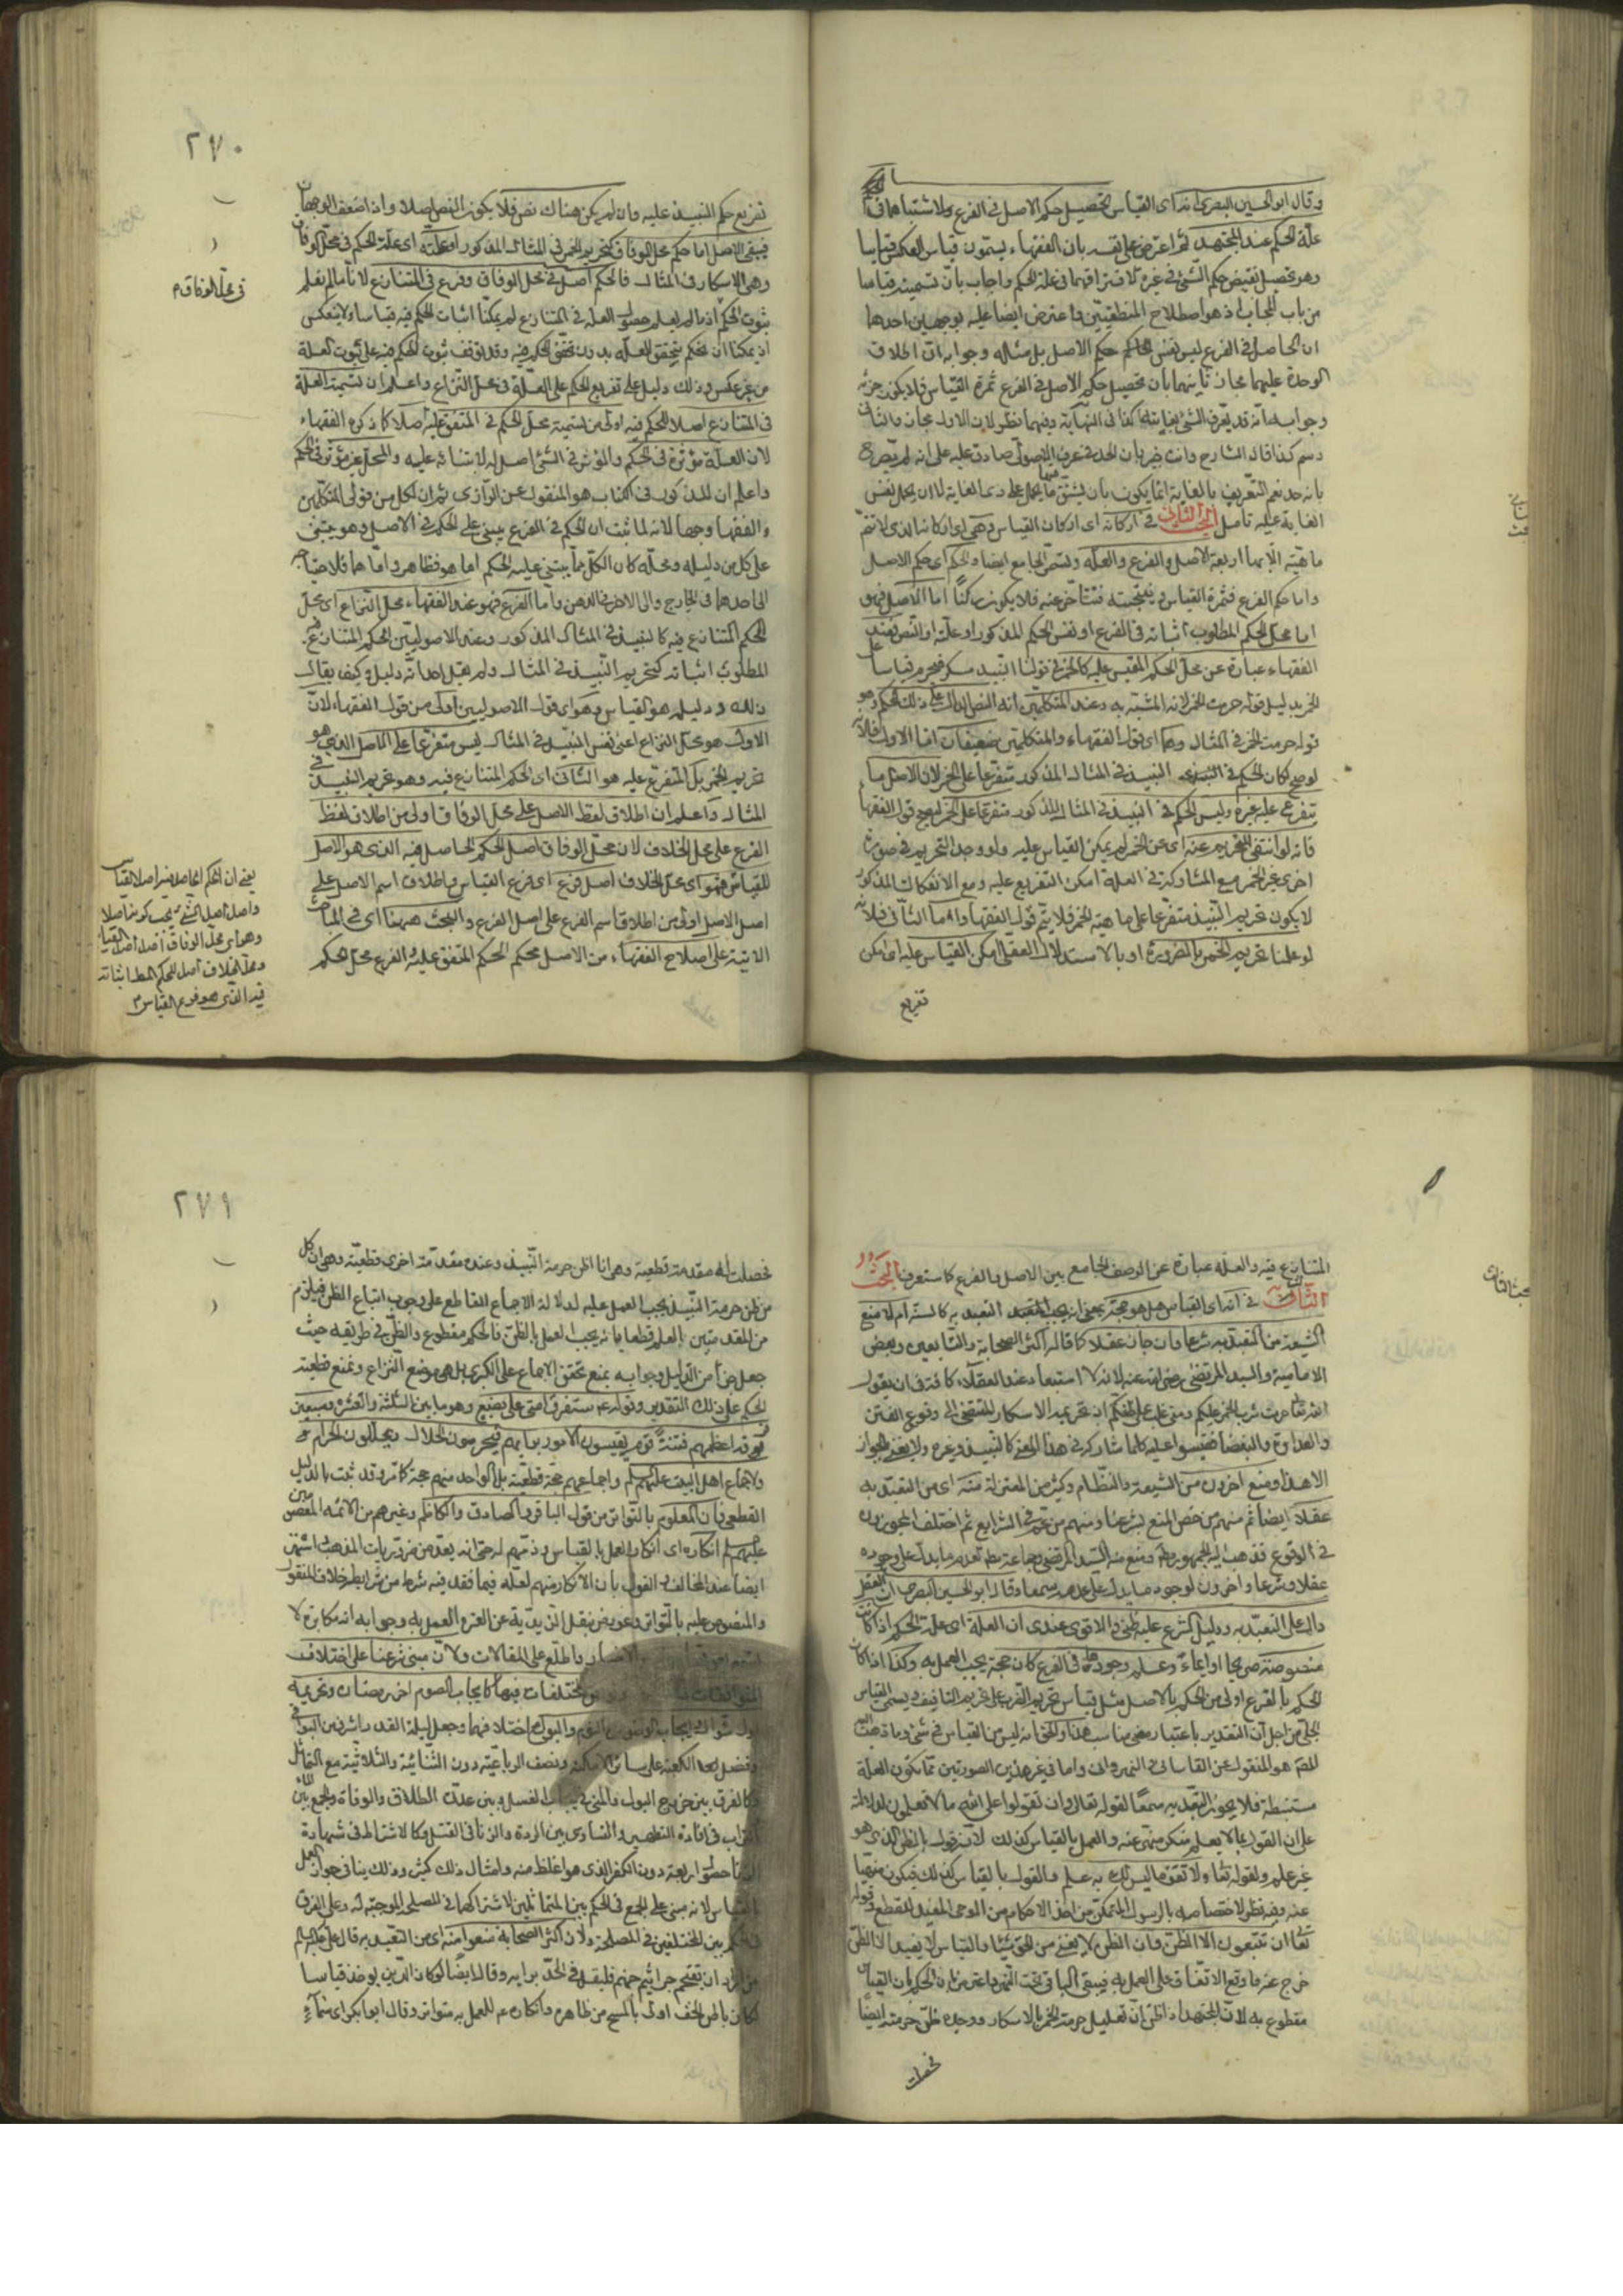 وقال ابو الحسين البصرى انه اى القياس تحصيل حكم الاصل فى الفرع ولاشتباههما فى
علة الحكم عند المجتهد ثم اعترض على نفسه بان الفقهاء يسمّون قياس العكس قياسا
وهو تحصيل نقيض حكم الشئ فى غيره لافتراقهما فى علة الحكم واجاب بان تسميته قياسا
من باب المجاز اذ هو اصطلاح المنطقيين واعترض ايضا عليه بوجهين احدها
ان الحاصل فى الفرع ليس نفس حكم الاصل بل مثاله وجوابه ان اطلاق
الوحدة عليهما مجاز ثانيهما بان تحصيل حكم الاصل فى الفرع ثمرة القياس فلا يكون جزئه
وجوابه انه قد يعرف الشئ بغايته كذا فى النهاية وفيهما نظر لان الاول مجاز والثانى
رسم كذا قال الشارح وانت خبير بان الحد فى عرف الاصولى صادق عليه على انه لم يصرح
بانه حد نعم التعريف بالغاية انما يكون بان يشتق منها ما يحمل على ذى الغاية لا ان يحمل نفس
الغاية عليه تأمل البحث الثانى فى اركانه اى اركان القياس وهى اى اركانه الذى لا تتم
ماهيته الا بها اربعة الاصل والفرع والعلة وتسمى الجامع ايضا والحكم اى حكم الاصل
واما حكم الفرع فثمرة القياس ونتيجته فتتأخر عنه فلا يكون ركناً اما الاصل فهو
اما محل الحكم المطلوب اثباته فى الفرع او نفس الحكم المذكور او علته او النص فعند
الفقهاء عبارة عن محل الحكم المقيس عليه كالخمر فى قولنا النبيذ مسكر فيحرم قياسا على
الخمر بدليل قوله حرمت الخمر لانه المشبه به وعند المتكلمين انه النص الدال على ذلك الحكم وهو
قوله حرمت الخمر فى المثال وهما اى قول الفقهاء والمتكلمين ضعيفان اما الاول فلانه
لو صح لكان الحكم فى النبيذ فى المثال المذكور متفرعا على الخمر لان الاصل ما
يتفرع عليه غيره وليس الحكم فى النبيذ فى المثال المذكور متفرعا على الخمر ليصح قول الفقهاء
فانه لو انتفى التحريم عنه اى عن الخمر لم يمكن القياس عليه ولو وجد التحريم فى صورة
اخرى غير الخمر مع المشاركة فى العلة امكن التفريع عليه ومع الانفكاك المذكور
لا يكون تحريم النبيذ متفرعا على ماهية الخمر فلا يتم قول الفقهاء واما الثانى فلانه
لو علمنا تحريم الخمر بالضرورة او بالاستدلال العقلى امكن القياس عليه اى امكن
تفريع
٢٧٠
تفريع حكم النبيذ عليه وان لم يكن هناك نص فلا يكون النص اصلا واذا ضعف الوجهان
فبقى الاصل اما حكم محل الوفاق كتحريم الخمر فى المثال المذكور او علته اى علة الحكم فى محل الوفاق
وهى الاسكار فى المثال فالحكم اصل فى محل الوفاق وفرع فى المتنازع لانا ما لم نعلم
ثبوت الحكم اذ ما لم يعلم حصول العلة فى المتنازع لم يمكنا اثبات الحكم فيه قياسا ولا ينعكس
اذ يمكنا ان نحكم بتحقق العلة بدون تحقق الحكم فيه وقد توقف ثبوت الحكم فيه على ثبوت العلة
من غير عكس وذلك دليل على تفريع الحكم على العلة فى محل النزاع واعلم ان تسمية العلة
فى المتنازع اصلا للحكم فيه اولى من تسمية محل الحكم فى المتفق عليه اصلا كما ذكره الفقهاء
لان العلة مؤثرة فى الحكم والمؤثر فى الشئ اصل له لابتنائه عليه والمحل غير مؤثر فى الحكم
واعلم ان المذكور فى الكتاب هو المنقول عن الرازى ثم ان لكل من قولى المتكلمين
والفقهاء وجها لانه لما ثبت ان الحكم فى الفرع يبنى على الحكم فى الاصل وهو يبتنى
على كل من دليله ومحله كان الكل مما يبتنى عليه الحكم
الى احدهما فى الخارج والى الاخر فى الذهن واما الفرع فهو عند الفقهاء محل النزاع اى محل
الحكم المتنازع فيه كالنبيذ فى المثال المذكور وعند الاصوليين الحكم المتنازع فيه
المطلوب اثباته كتحريم النبيذ فى المثال ولم يقل احد انه دليله وكيف يقال
ذلك ودليله هو القياس وهو اى قول الاصوليين اولى من قول الفقهاء لان
الاول هو محل النزاع اعنى نفس النبيذ فى المثال ليس متفرعا على الاصل الذى هو
تحريم الخمر بل المتفرع عليه هو الثانى اى الحكم المتنازع فيه وهو تحريم النبيذ فى
المثال واعلم ان اطلاق لفظ الاصل على محل الوفاق اولى من اطلاق لفظ
الفرع على محل الخلاف لان محل الوفاق اصل الحكم الحاصل فيه الذى هو الاصل
للقياس فهو اى محل الخلاف اصل فرع اى فرع القياس واطلاق اسم الاصل على
اصل الاصل اولى من اطلاق اسم الفرع على اصل الفرع والبحث ههنا اى فى المباحث
الاتية على اصلاح الفقهاء من الاصل محكم الحكم المتفق عليه والفرع محل الحكم
فى محل الوفاق م
يعنى ان الحكم الحاصل فيه اصل القياس
واصل اصل الشئ يجب كونه اصلا
ومحل الخلاف اصل للحكم المط اثباته
فيه الذى هو فرع القياس م
المتنازع فيه والعلة عبارة عن الوصف الجامع بين الاصل والفرع كما ستعرف البحث
الثالث فى انه اى القياس هل هو حجة بمعنى انه يجب التعبد به كالسنة ام لا منع
الشيعة من التعبد به شرعا وان جاز عقلا كما قاله اكثر الصحابة والتابعين وبعض
الامامية والسيد المرتضى رضى الله عنه لانه لا استبعاد عند العقلاء كافة فى ان يقول
الله تعالى حرمت شرب الخمر عليكم ومتى غلب على ظنكم ان تحريمه الاسكار المفضى الى وقوع الفتن
والعداوة والبغضا فقيسوا عليه كلما شاركه فى هذا المعنى كالنبيذ وغيره ولا يعنى بالجواز
الا هذا ومنع اخرون من الشيعة والنظام وكثير من المعتزلة منه اى من التعبد به
عقلا ايضا ثم منهم من خص المنع بشرعنا ومنهم من عمم فى الشرايع ثم اختلف المجوزون
فى الوقوع فذهب اليه الجمهور ومنع منه السيد المرتضى وجماعة
عقلا وشرعا واخرون لوجود ما يدل على عدمه سمعا وقال ابو الحسين البصرى ان العقل
دال على التعبد به ودليل الشرع عليه ظنى والاقوى عندى ان العلة اى علة الحكم اذا كانت
منصوصة صريحا او ايماء وعلم وجودها فى الفرع كان حجة يجب العمل به وكذا اذا كان
الحكم بالفرع اولى من الحكم بالاصل مثل قياس تحريم الضرب على تحريم التافيف ويسمى القياس
الجلى من اجل ان التقدير باعتبار معنى مناسب هذا والحق انه ليس من القياس فى شئ وما ذهب اليه
المصنف هو المنقول عن القاسانى والنهروانى واما فى غير هذين الصورتين مما تكون العلة
مستنبطة فلا يجوز التعبد به سمعا لقوله تعالى وان تقولوا على الله ما لا تعلمون لدلالته
على ان القول بما لا يعلم منكر منهى عنه والعمل بالقياس كذلك لانه قول بالظن الذى هو
غير علم ولقوله تعالى ولا تقف ما ليس لك به علم والقول بالقياس كذلك فيكون منهيا
عنه وفيه نظر لاختصاصه بالرسول المتمكن من اخذ الاحكام من الوحى المفيد للقطع وقوله
تعالى ان تتبعون الا الظن وان الظن لا يغنى من الحق شيئا والقياس لا يفيد الا الظن
خرج عنه ما وقع الاتفاق على العمل به فيبقى الباقى تحت النهى واعترض بان الحكم بان القياس
مقطوع به لان المجتهد اذا ظن ان تعليل حرمة الخمر بالاسكار ووجده ظن حرمته ايضا
فحصلت
البحث الثالث
٢٧١
فحصلت له مقدمة قطعية وهى انا اظن حرمة النبيذ وعنده مقدمة اخرى قطعية وهى ان كل
من ظن حرمة النبيذ يجب العمل عليه لدلالة الاجماع القاطع على وجوب اتباع الظن فيلزم
من المقدمتين العلم قطعا بانه يجب العمل بالظن فالحكم مقطوع والظن فى طريقه حيث
جعل جزأ من الدليل وجوابه بمنع تحقق الاجماع على الكبرى بل هى موضع النزاع وبمنع قطعية
الحكم على ذلك التقدير وقوله ع ستفترق امتى على بضع وهو ما بين الثلثة والعشرة وسبعين
فرقة اعظمهم فتنة قوم يقيسون الامور برايهم فيحرمون الحلال ويحللون الحرام
ولاجماع اهل البيت عليهم السلم واجماعهم حجة قطعية بل الواحد منهم حجة كما مر وقد ثبت بالدليل
القطعى فان المعلوم بالتواتر من قول الباقر والصادق والكاظم وغيرهم من الائمة المعصومين
عليهم السلم انكاره اى انكار العمل بالقياس وذمهم له حتى انه يعد من ضروريات المذهب واشتهر
ايضا عند المخالف والقول بان الانكار منهم لعله فيما فقد فيه شرط من شرايطه خلاف المنقول
والمنصوص عليه بالتواتر وعورض بنقل الزيدية عن العترة العمل به وجوابه انه مكابرة لا
واطلع على المقالات ولان مبنى شرعنا على اختلاف
المتوافقات المختلفات فيها كايجاب الصوم اخر رمضان وتحريمه
اول شوال وايجاب الوضوء من النوم والبول مع اختلافهما وجعل ليلة القدر اشرف من البواقى
وفضل بعد الكعبة على سائر الامكنة ونصف الرباعية دون الثنائية والثلاثية مع التماثل
وكالفرق بين خروج البول والمنى فى ايجاب الغسل وبين عدة الطلاق والوفاة والجمع بين الماء
والتراب فى افادة التطهير والتساوى بين الردة والزنا فى القتل وكالاشتراط فى شهادة
الزنا حضور اربعة دون الكفر الذى هو اغلظ منه وامثال ذلك كثيرة وذلك ينافى جواز العمل
بالقياس لانه مبنى على الجمع فى الحكم بين المتماثلين لاشتراكهما فى المصلحة الموجبة له وعلى الفرق
فى الحكم بين المختلفين فى المصلحة ولان اكثر الصحابة منعوا منه اى من التعبد به قال على عليه السلم
من اراد ان يقتحم جراثيم جهنم فليقل فى الجد برايه وقال ايضا لو كان الدين يوخذ قياسا
لكان باطن الخف اولى بالمسح من ظاهره وانكاره ع للعمل به متواتر وقال ابو بكر اى سماء